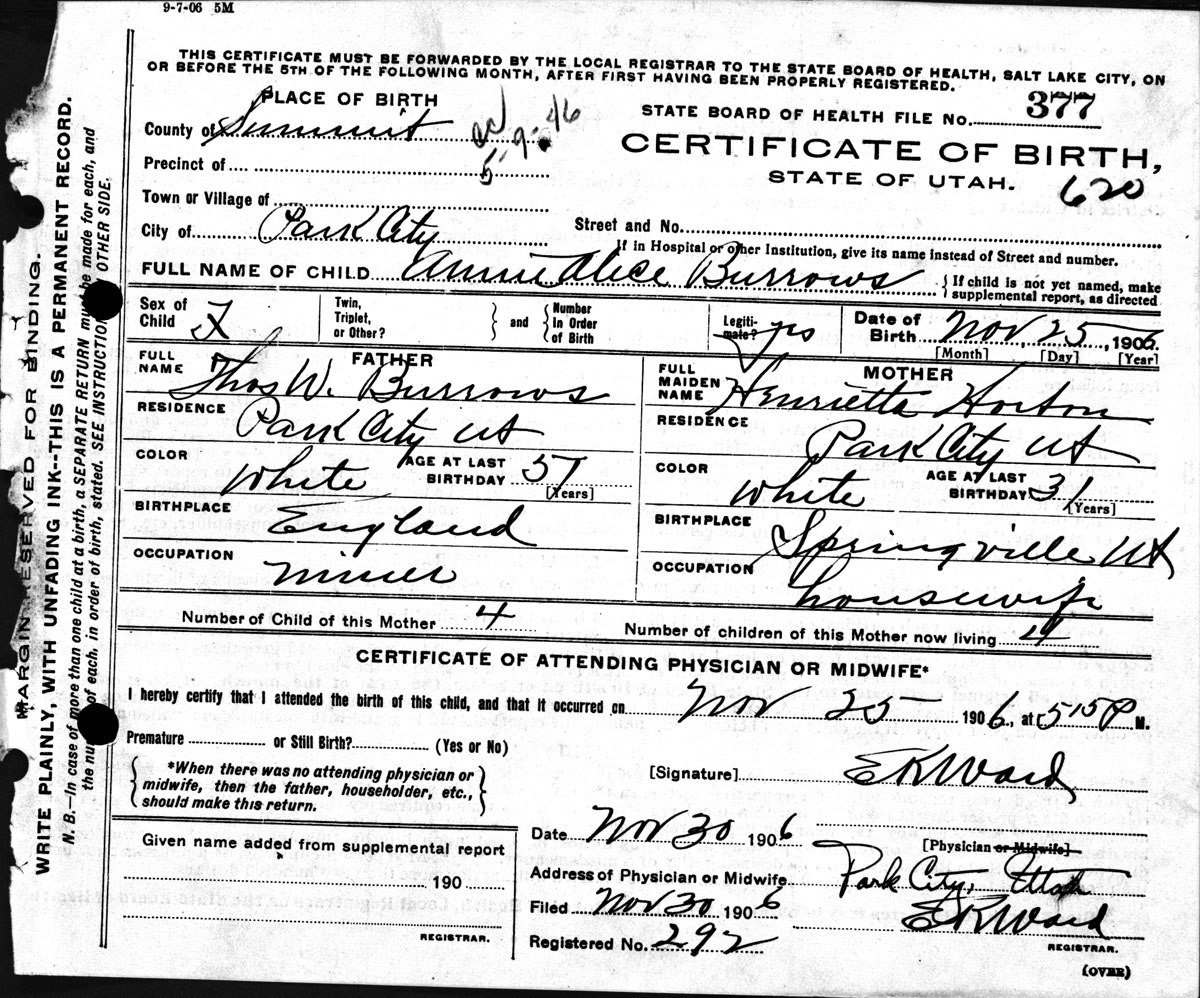 9-7-06 5M
THIS CERTIFICATE MUST BE FORWARDED BY THE LOCAL REGISTRAR TO THE STATE BOARD OF HEALTH, SALT LAKE CITY, ON
OR BEFORE THE 5TH OF THE FOLLOWING MONTH, AFTER FIRST HAVING BEEN PROPERLY REGISTERED.
PLACE OF BIRTH
STATE BOARD OF HEALTH FILE No. 377
County of Summit
5-9-46
CERTIFICATE OF BIRTH,
STATE OF UTAH.
620
Precinct of
Town or Village of
City of Park City
Street and No.
If in Hospital or other Institution, give its name instead of Street and number.
FULL NAME OF CHILD Annie Alice Burrows
{ If child is not yet named, make
supplemental report, as directed
Sex of Child F
Twin, Triplet, or Other? } and { Number in Order of Birth
Legiti-mate? yes
Date of Birth Nov 25, 1906.
[Month] [Day] [Year]
FATHER
FULL NAME Thos W. Burrows
RESIDENCE Park City Ut
COLOR White
AGE AT LAST BIRTHDAY 57
[Years]
BIRTHPLACE England
OCCUPATION miner
MOTHER
FULL MAIDEN NAME Henrietta Horton
RESIDENCE Park City Ut
COLOR White
AGE AT LAST BIRTHDAY 31
[Years]
BIRTHPLACE Springville Ut
OCCUPATION housewife
Number of Child of this Mother 4
Number of children of this Mother now living 4
CERTIFICATE OF ATTENDING PHYSICIAN OR MIDWIFE*
I hereby certify that I attended the birth of this child, and that it occurred on Nov 25 1906, at 515 P M.
Premature or Still Birth? (Yes or No)
{ *When there was no attending physician or
midwife, then the father, householder, etc.,
should make this return. }
[Signature] E K Ward
[Physician or Midwife]
Date Nov 30 1906
Address of Physician or Midwife Park City, Utah
Filed Nov 30 1906
E K Ward
REGISTRAR.
Registered No. 292
(OVER)
Given name added from supplemental report
190
REGISTRAR.
MARGIN RESERVED FOR BINDING.
WRITE PLAINLY, WITH UNFADING INK--THIS IS A PERMANENT RECORD.
N. B.—In case of more than one child at a birth, a SEPARATE RETURN must be made for each, and
the nu of each, in order of birth, stated. SEE INSTRUCTION OTHER SIDE.